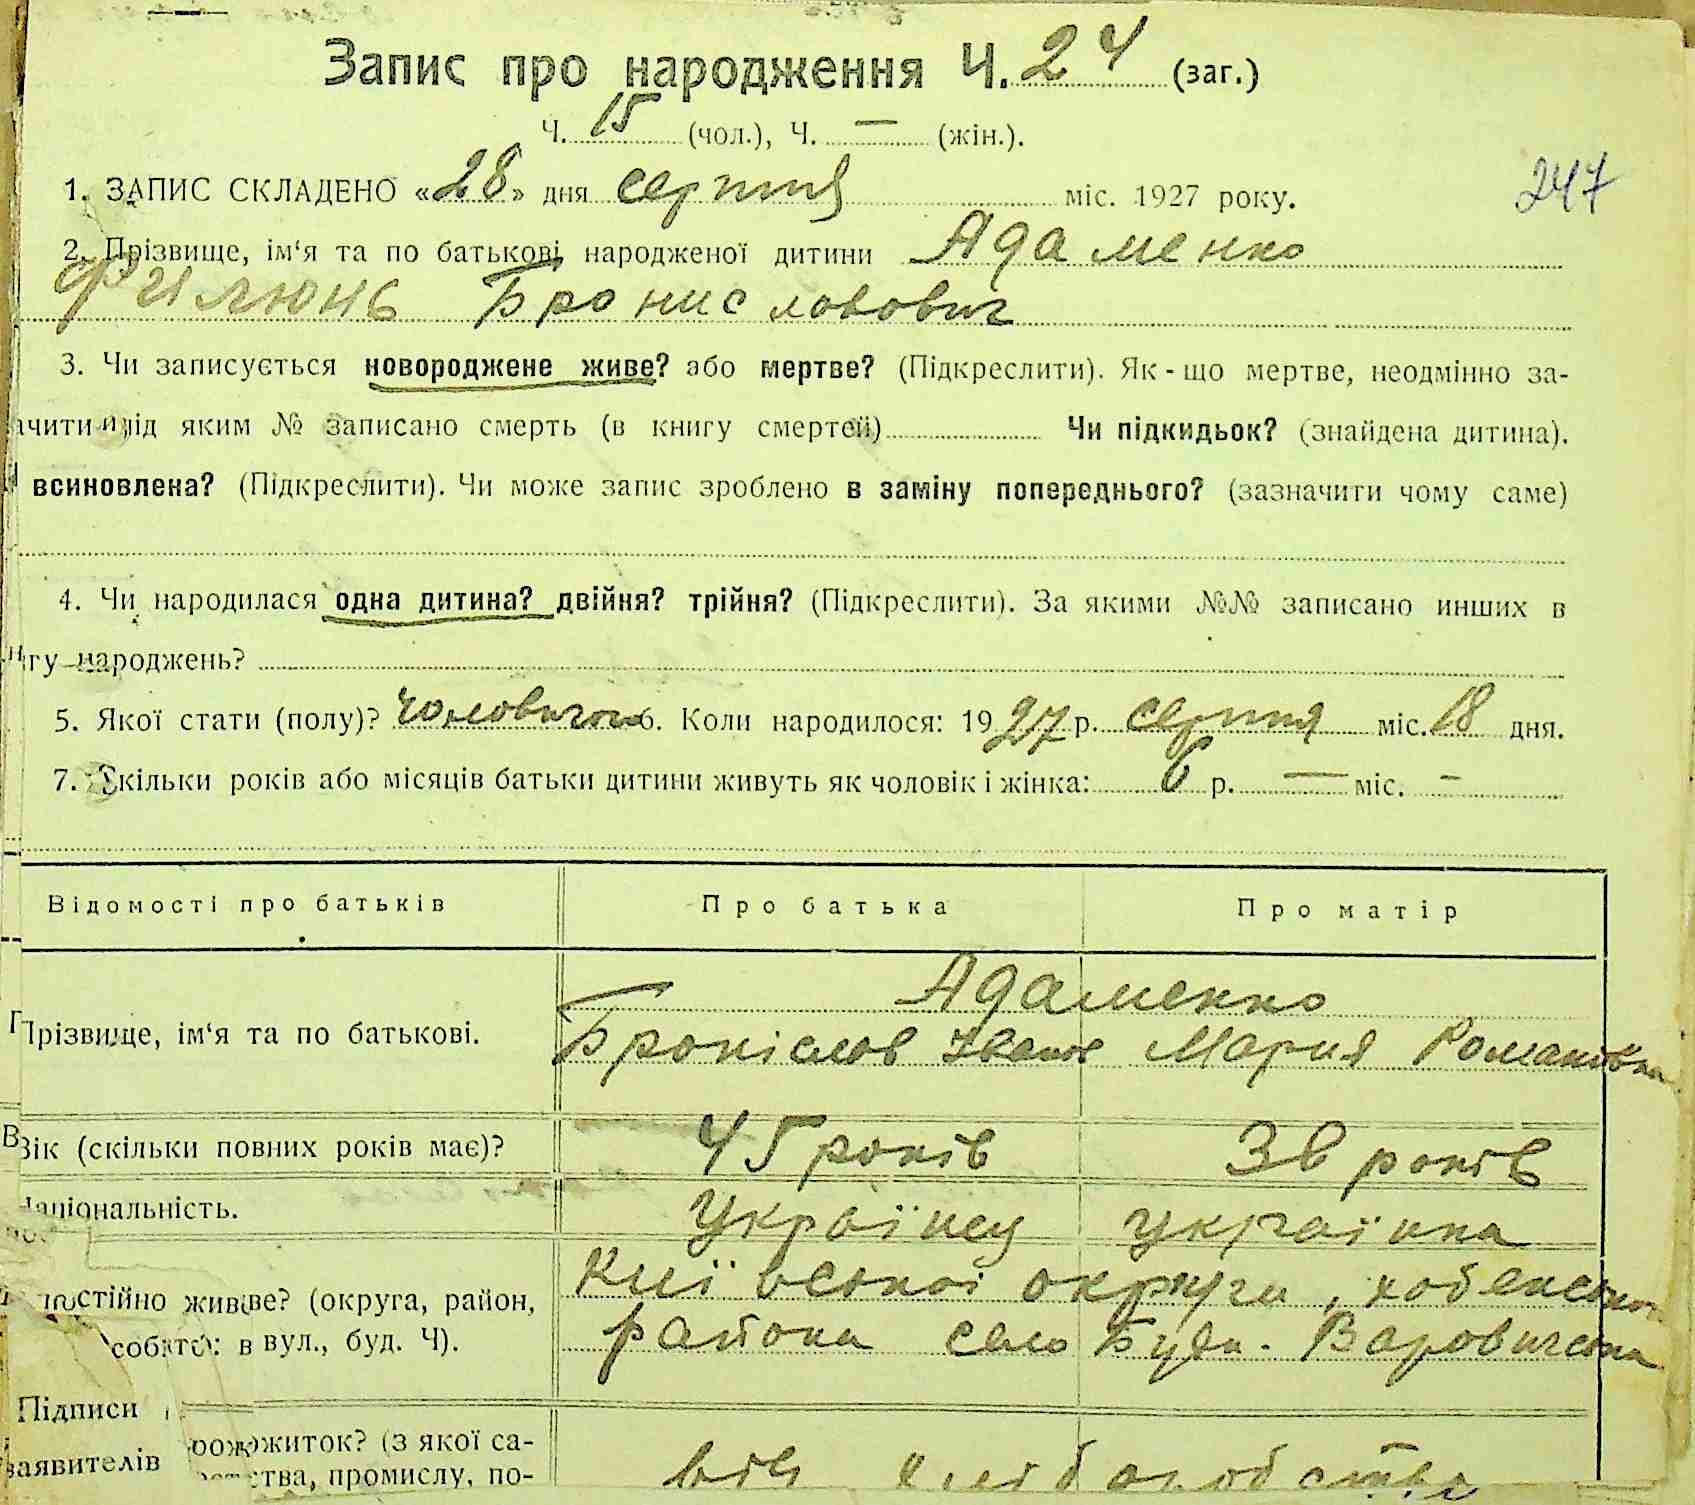 Запис про народження Ч. 24 (заг.)
Ч. 15 (чол.), Ч. — (жін.).
247
1. ЗАПИС СКЛАДЕНО «28» дня серпня міс. 1927 року.
2. Прізвище, ім'я та по батькові народженої дитини Адаменко
Филюнь Брониславович
3. Чи записується новороджене живе? або мертве? (Підкреслити). Як-що мертве, неодмінно за-
ачити під яким № записано смерть (в книгу смертей) Чи підкидьок? (знайдена дитина).
всиновлена? (Підкреслити). Чи може запис зроблено в заміну попереднього? (зазначити чому саме)
4. Чи народилася одна дитина? двійня? трійня? (Підкреслити). За якими №№ записано инших в
гу народжень?
5. Якої стати (полу)? чоловичого 6. Коли народилося: 1927 р. серпня міс. 18 дня.
7. Скільки років або місяців батьки дитини живуть як чоловік і жінка: 6 р. — міс. —
Відомості про батьків Про батька Про матір
Адаменко
Прізвище, ім'я та по батькові. Броніслов Іванов Мария Романовна
Вік (скільки повних років має)? 45 років 38 років
Національність. Українец українка
Київської округи,
постійно живе? (округа, район, района село Буда. Варовичська
вул., буд. Ч).
Підписи
ожиток? (з якої са-
заявителів тва, промислу, по- хліборобства